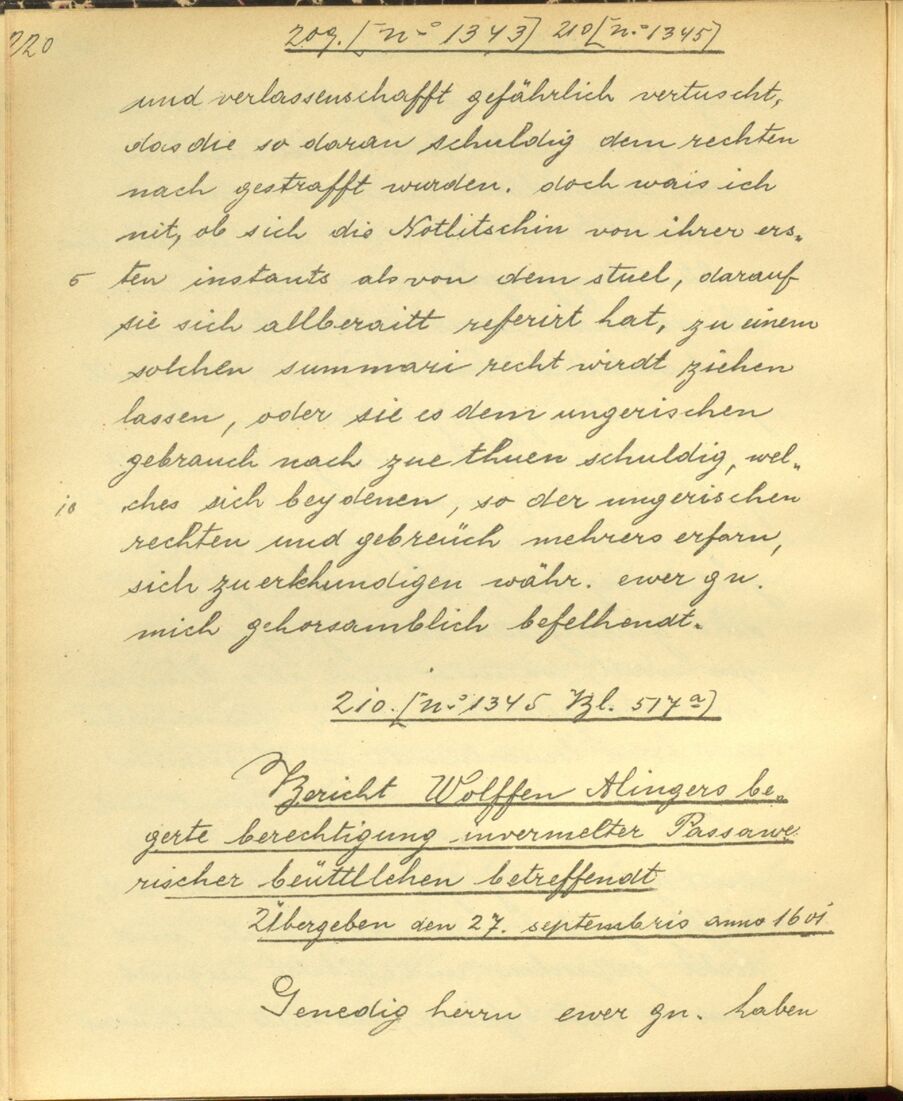 220
209. [no 1343] 210 [no 1345]
und verlassenschafft gefährlich vertuscht,
das die so daran schuldig dem rechten
nach gestrafft wurden. doch wais ich
nit, ob sich die Kotlitschin von ihrer ers-
5 ten instants als von dem stuel, darauf
sie sich allberaitt referirt hat, zu einem
solchen summari recht wirdt ziehen
lassen, oder sie es dem ungerischen
gebrauch nach zue thuen schuldig, wel-
10 ches sich bey denen, so der ungerischen
rechten und gebreüch mehrers erfarn,
sich zu erkhundigen währ. ewer gn.
mich gehorsamblich befelhendt.
210. [no 1345 Bl. 517a]
Bericht Wolffen Alingers be-
gerte berechtigung invermelter Passawe-
rischer beüttlchen betreffendt
Übergeben den 27. septembris anno 1601
Genedig herrn ewer gn. haben